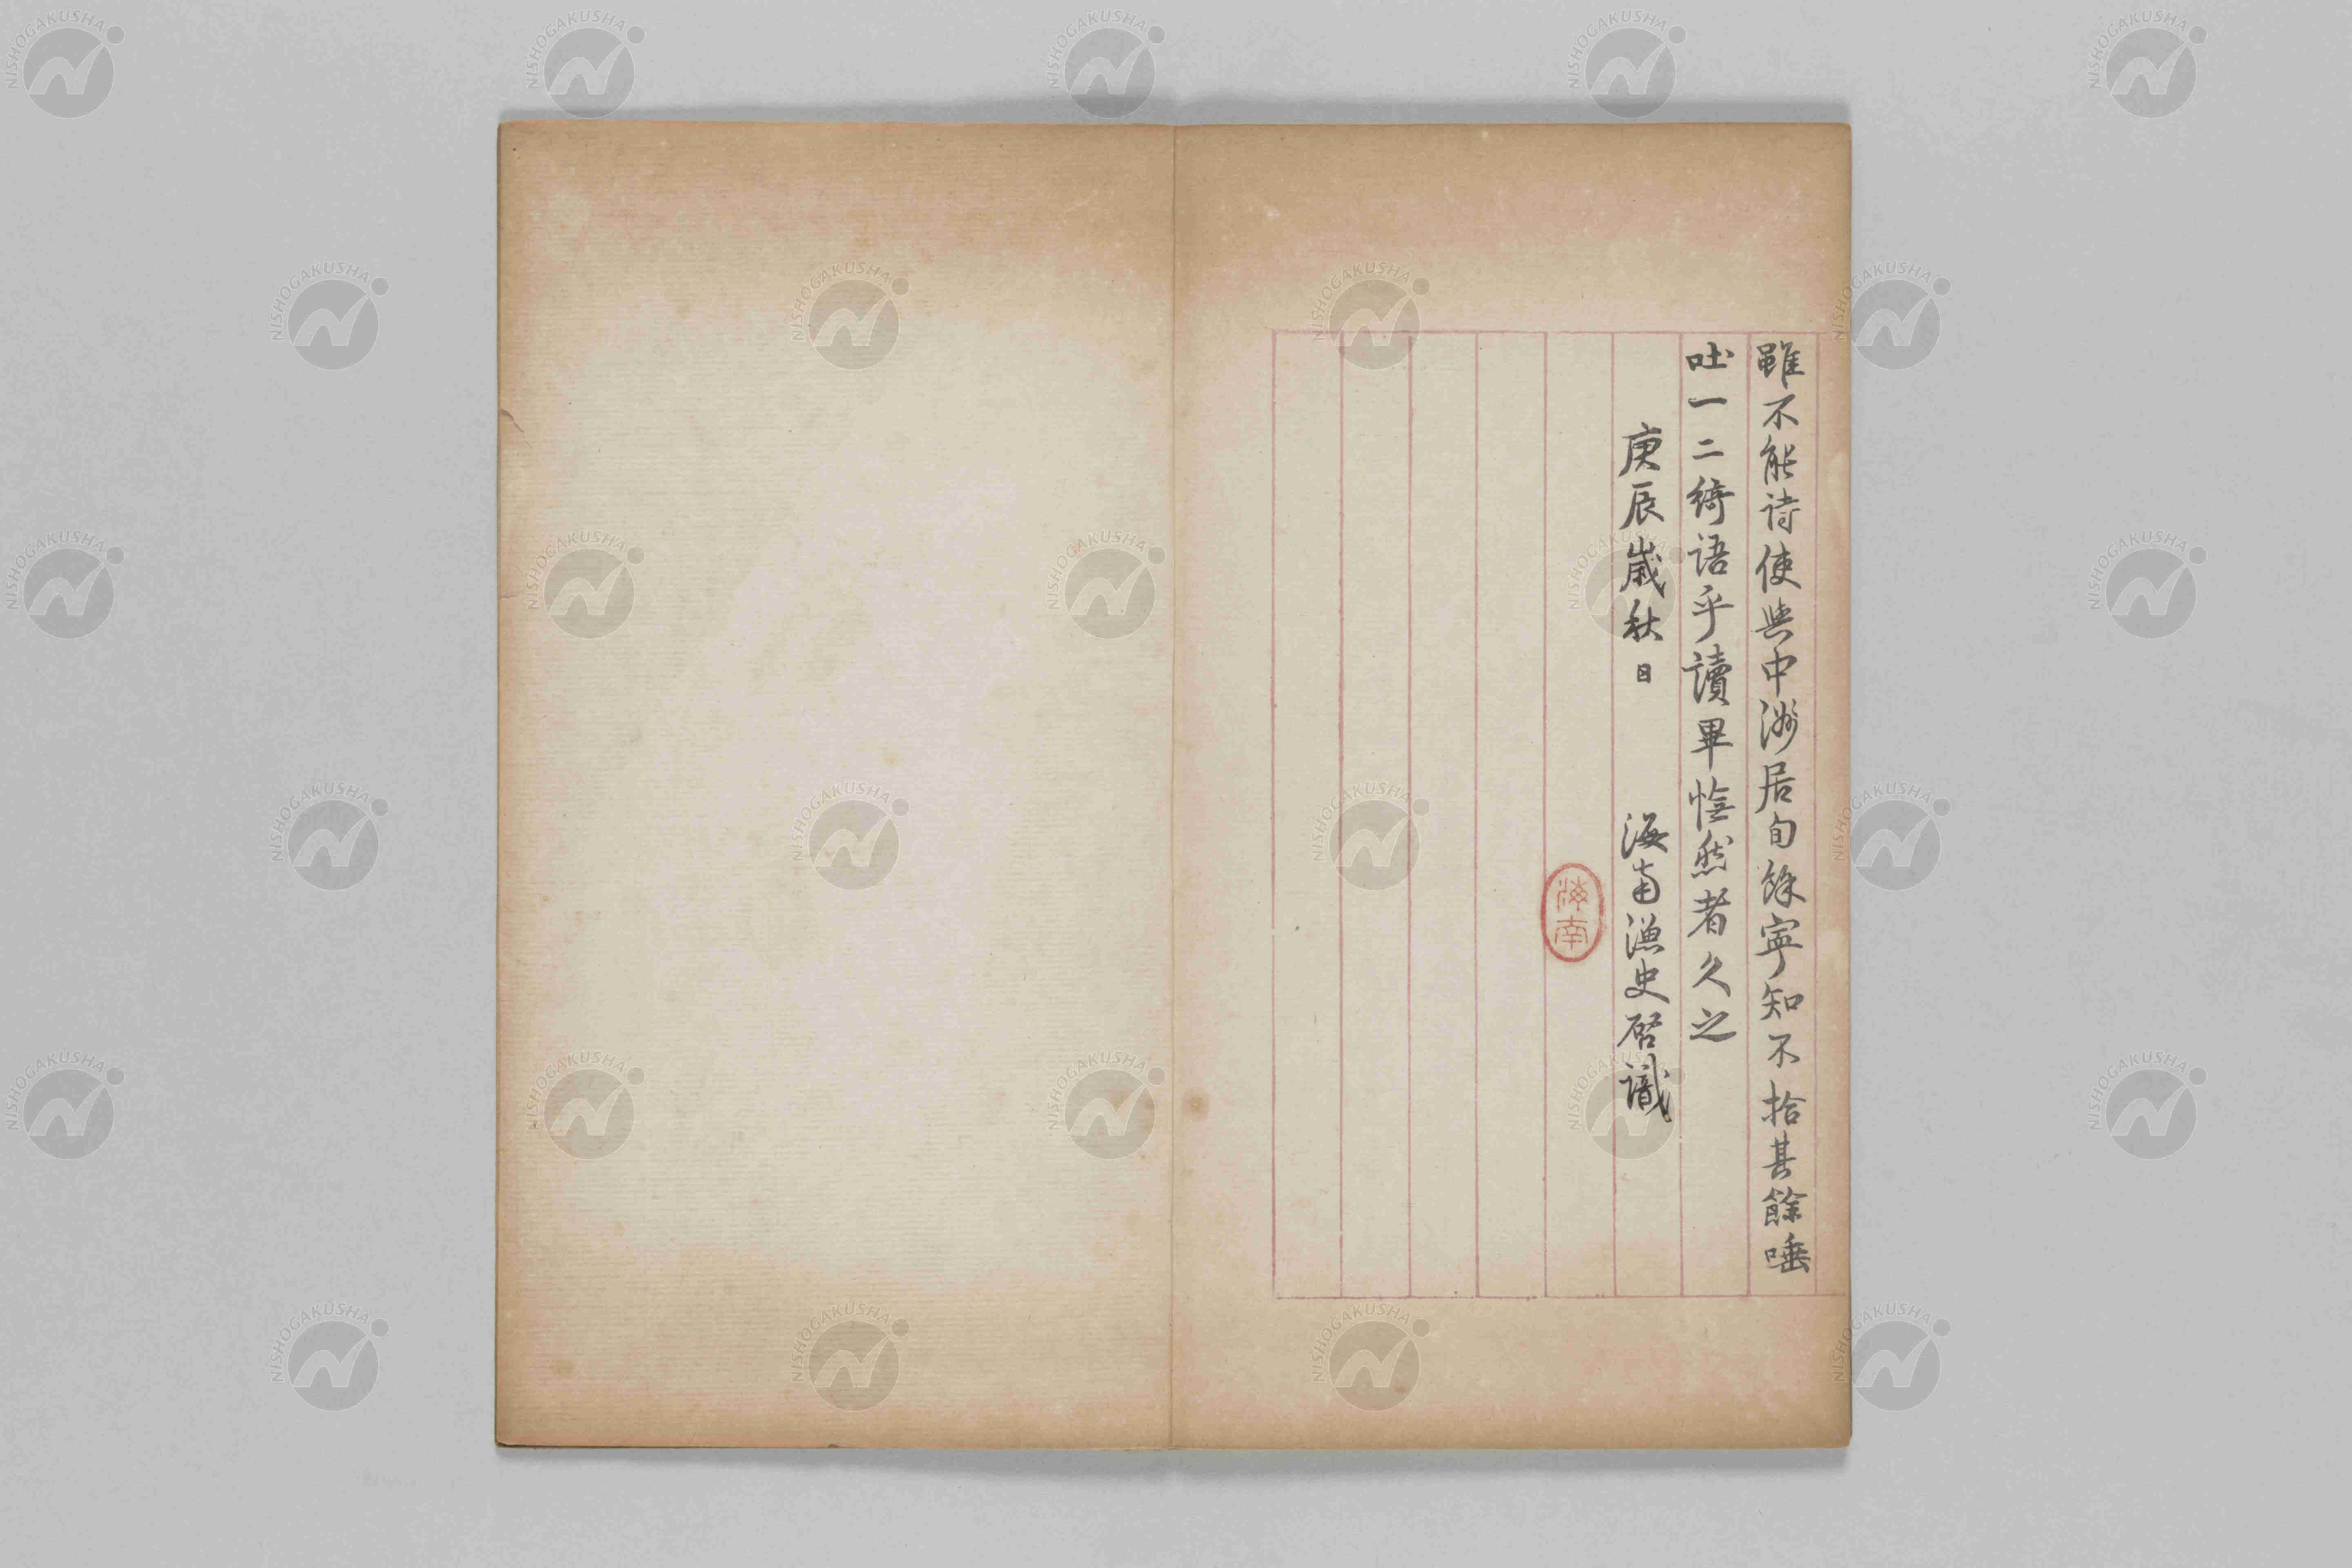 雖不能詩使與中洲居旬餘寧知不拾其餘唾
吐一二綺語乎讀畢憮然者久之
庚辰歲秋日 海南漁史啓識
海南
NISHOGAKUSHA